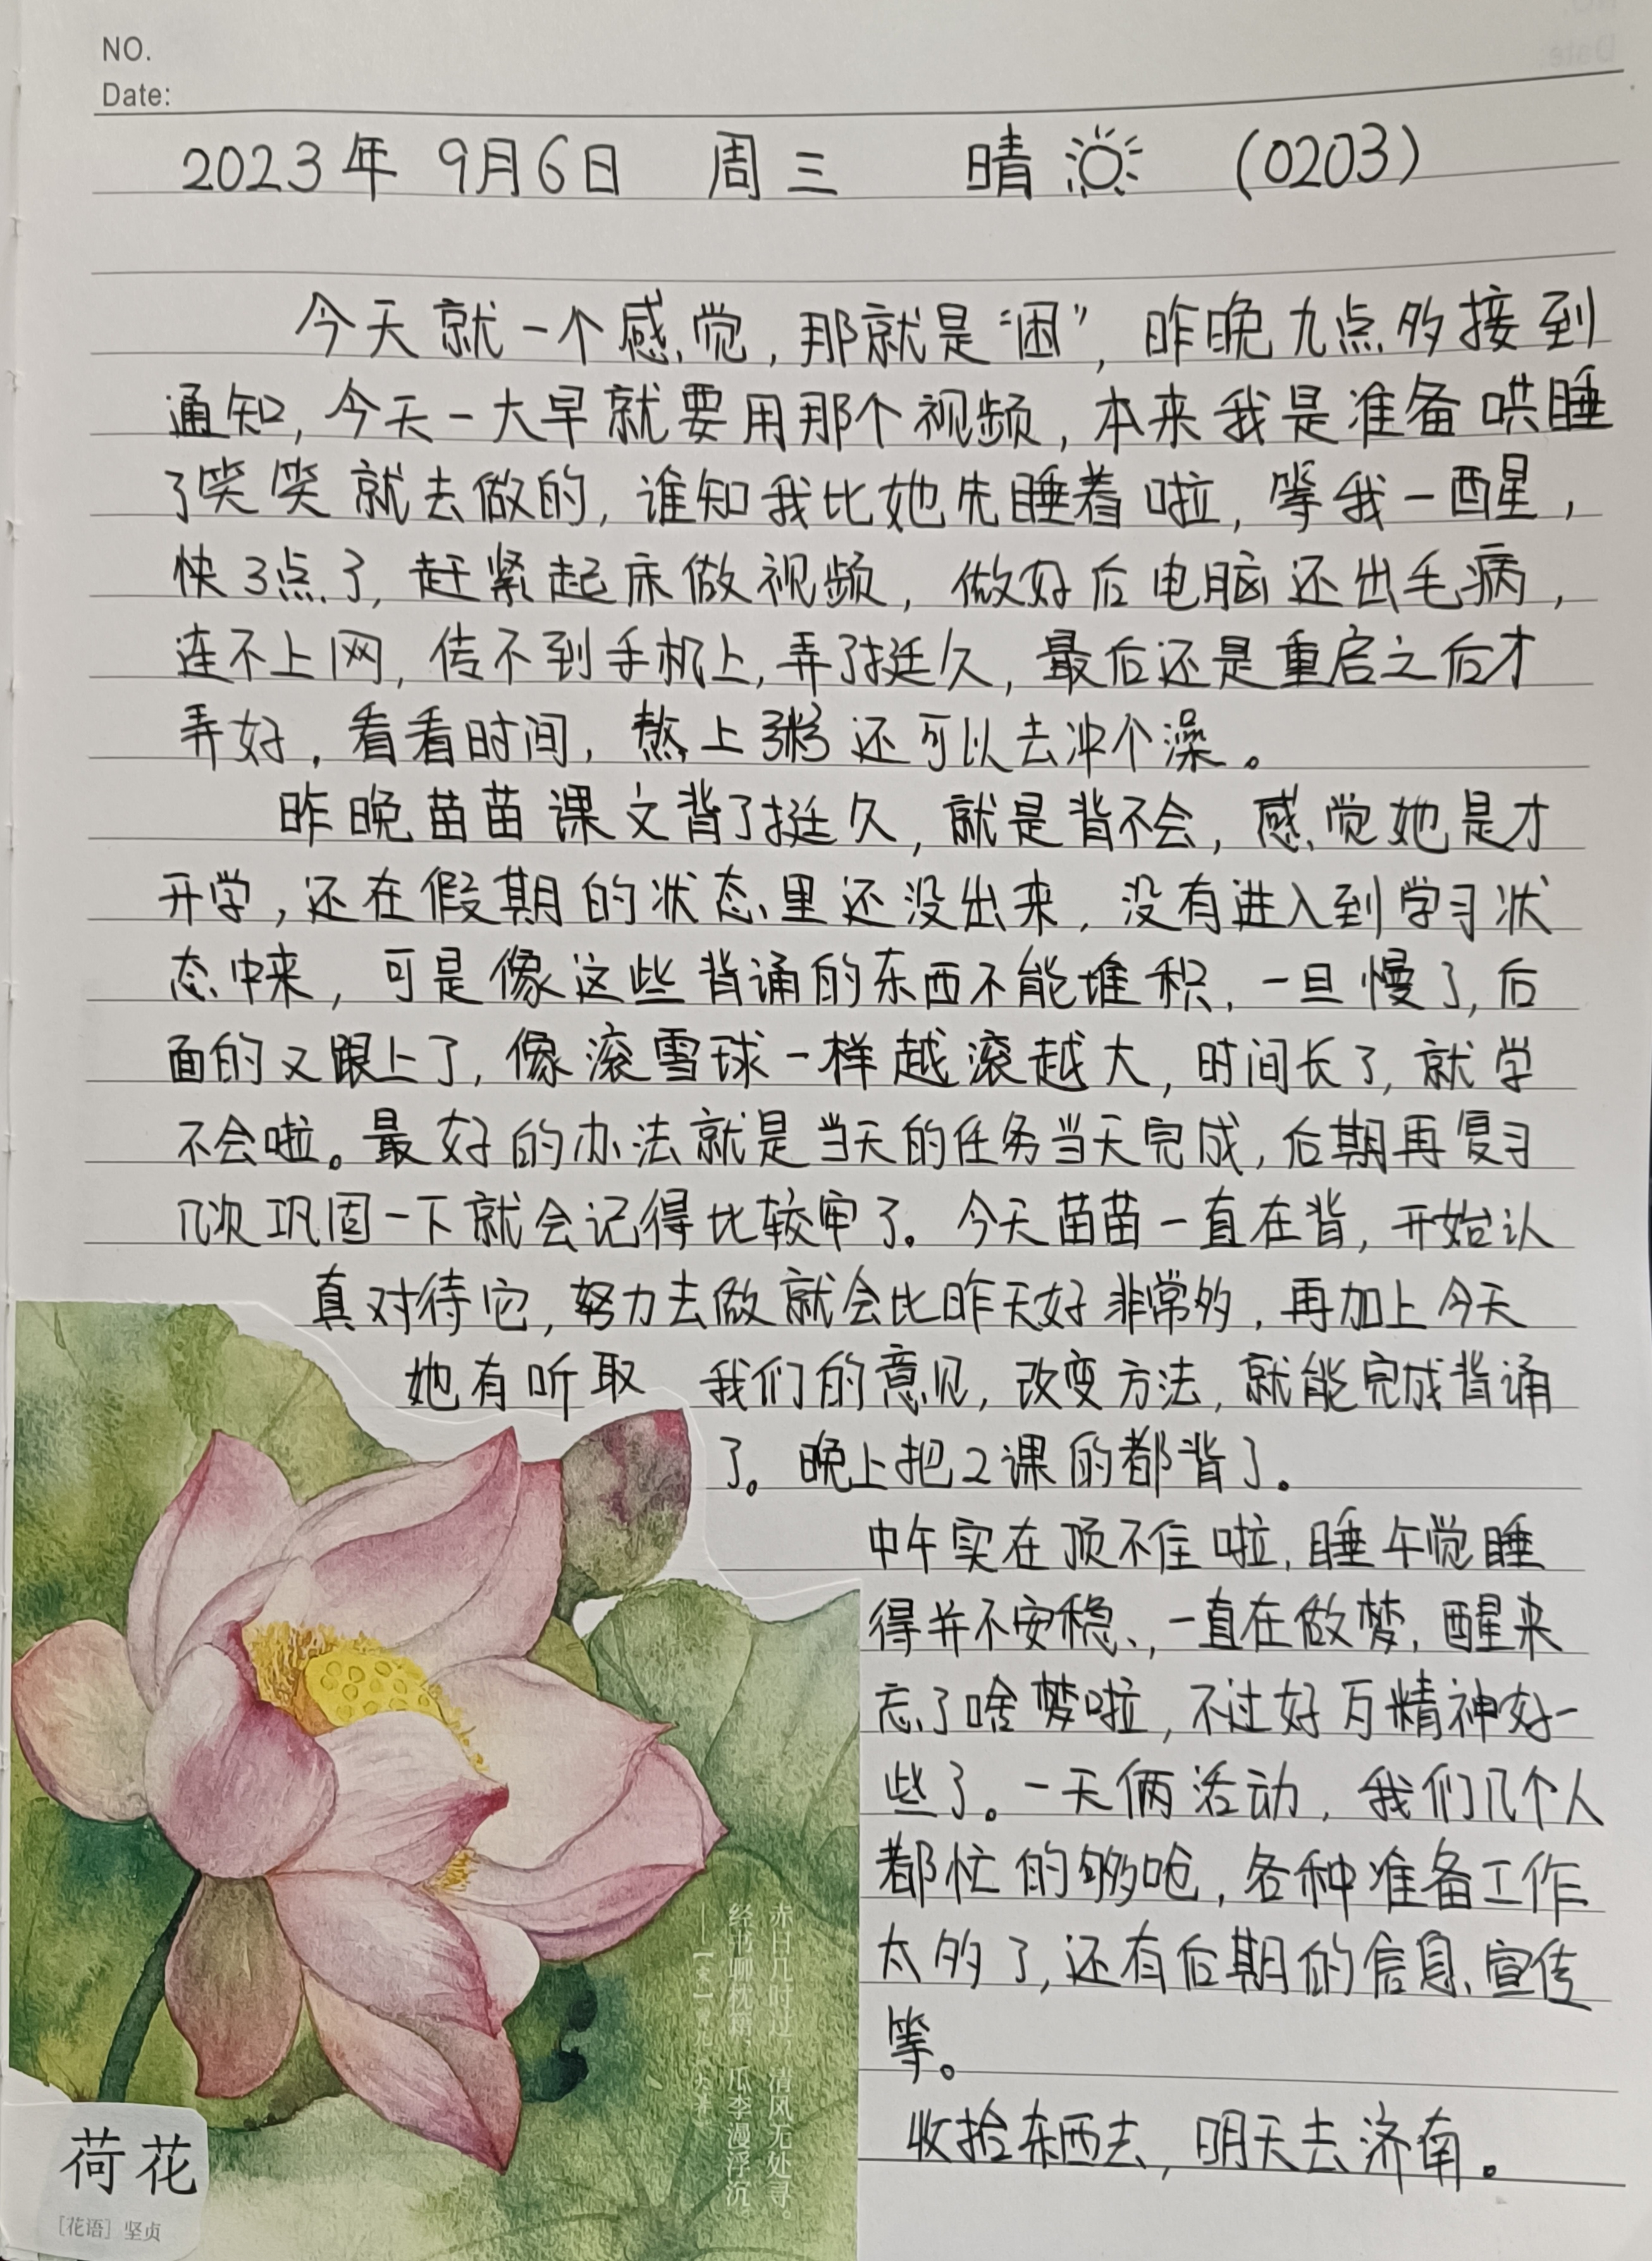 NO.
Date:
2023年 9月6日 周三 晴 (0203)
今天就一个感觉,那就是“困”,昨晚九点多接到
通知,今天一大早就要用那个视频,本来我是准备哄睡
了笑笑就去做的,谁知我比她先睡着啦,等我一醒,
快3点了,赶紧起床做视频,做好后电脑还出毛病,
连不上网,传不到手机上,弄了挺久,最后还是重启之后才
弄好,看看时间,熬上粥还可以去冲个澡。
昨晚苗苗课文背了挺久,就是背不会,感觉她是才
开学,还在假期的状态里还没出来,没有进入到学习状
态中来,可是像这些背诵的东西不能堆积,一旦慢了,后
面的又跟上了,像滚雪球一样越滚越大,时间长了,就学
不会啦。最好的办法就是当天的任务当天完成,后期再复习
几次巩固一下就会记得比较牢了。今天苗苗一直在背,开始认
真对待它,努力去做就会比昨天好非常多,再加上今天
她有听取 我们的意见,改变方法,就能完成背诵
了。晚上把2课的都背了。
中午实在顶不住啦,睡午觉睡
得并不安稳,一直在做梦,醒来
忘了啥梦啦,不过好歹精神好一
些了。一天俩活动,我们几个人
都忙的够呛,各种准备工作
太多了,还有后期的信息、宣传
等。
收拾东西去,明天去济南。
赤日几时过,清风无处寻。
经书聊枕籍,瓜李漫浮沉。
荷花
[花语] 坚贞